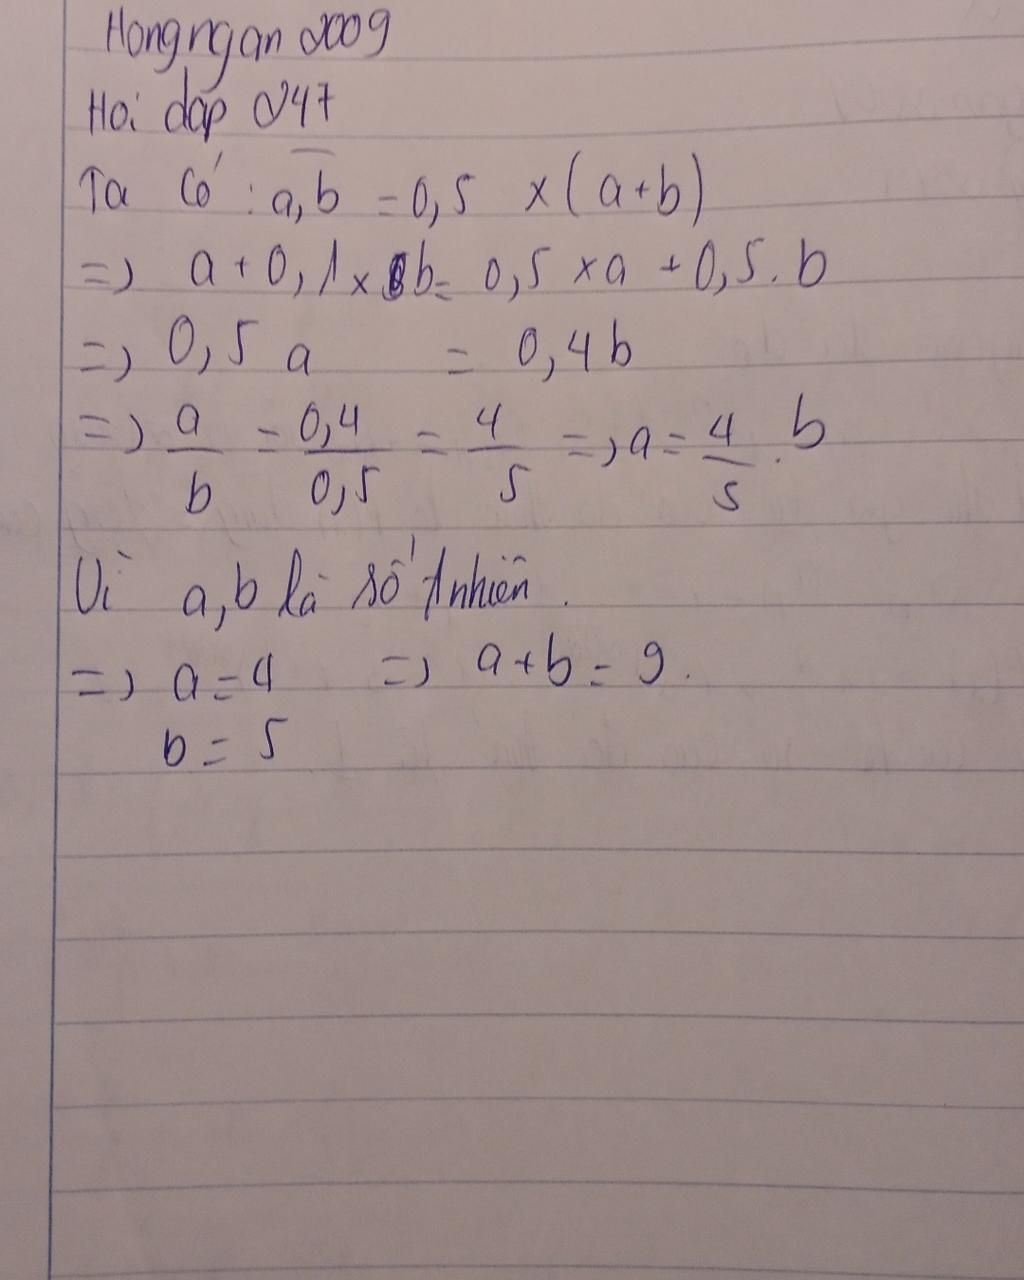 Hongngan 2009
Hoi dap 247
Ta có : a,b = 0,5 x (a+b)
=> a + 0,1 x b = 0,5 x a + 0,5 . b
=> 0,5 a = 0,4 b
=> a/b = 0,4/0,5 = 4/5 => a = 4/5 . b
Vì a,b là số tnhiên .
=> a = 4 => a + b = 9 .
b = 5